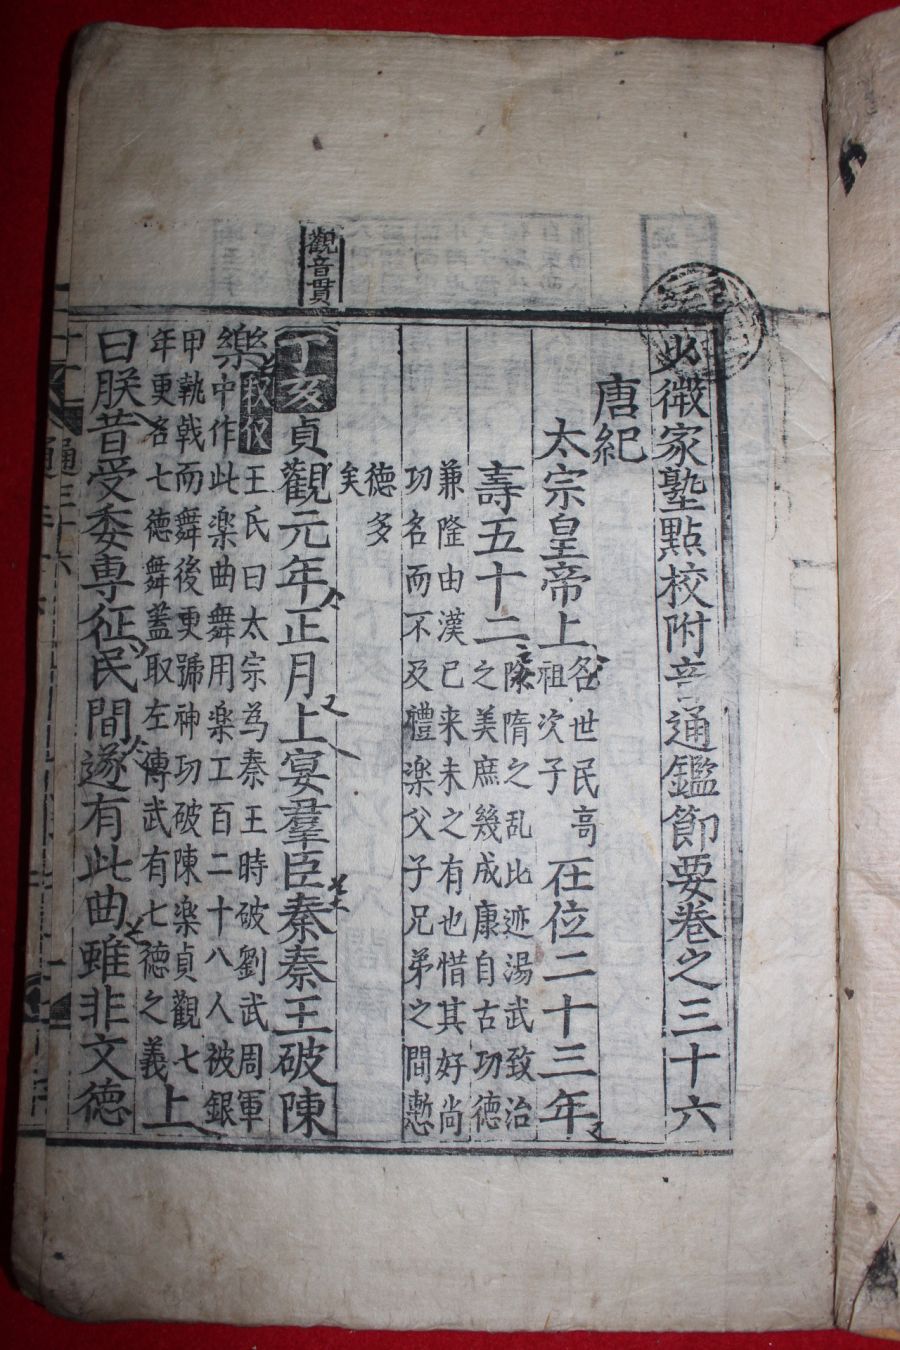 少微家塾點校附音通鑑節要卷之三十六
唐紀
太宗皇帝上
名世民高
祖次子
在位二十三年
壽五十二
除隋之乱比迹湯武致治
之美庶幾成康自古功德
兼隆由漢已来未之有也惜其好尚
功名而不及禮楽父子兄弟之間慙
德多
矣
觀音貫
丁亥貞觀元年正月上宴羣臣秦秦王破陳
樂
王氏曰太宗為秦王時破劉武周軍
中作此楽曲舞用楽工百二十八人被銀
甲執戟而舞後更號神功破陳楽貞觀七
年更名七德舞蓋取左傳武有七德之義
上
曰朕昔受委專征民間遂有此曲雖非文德